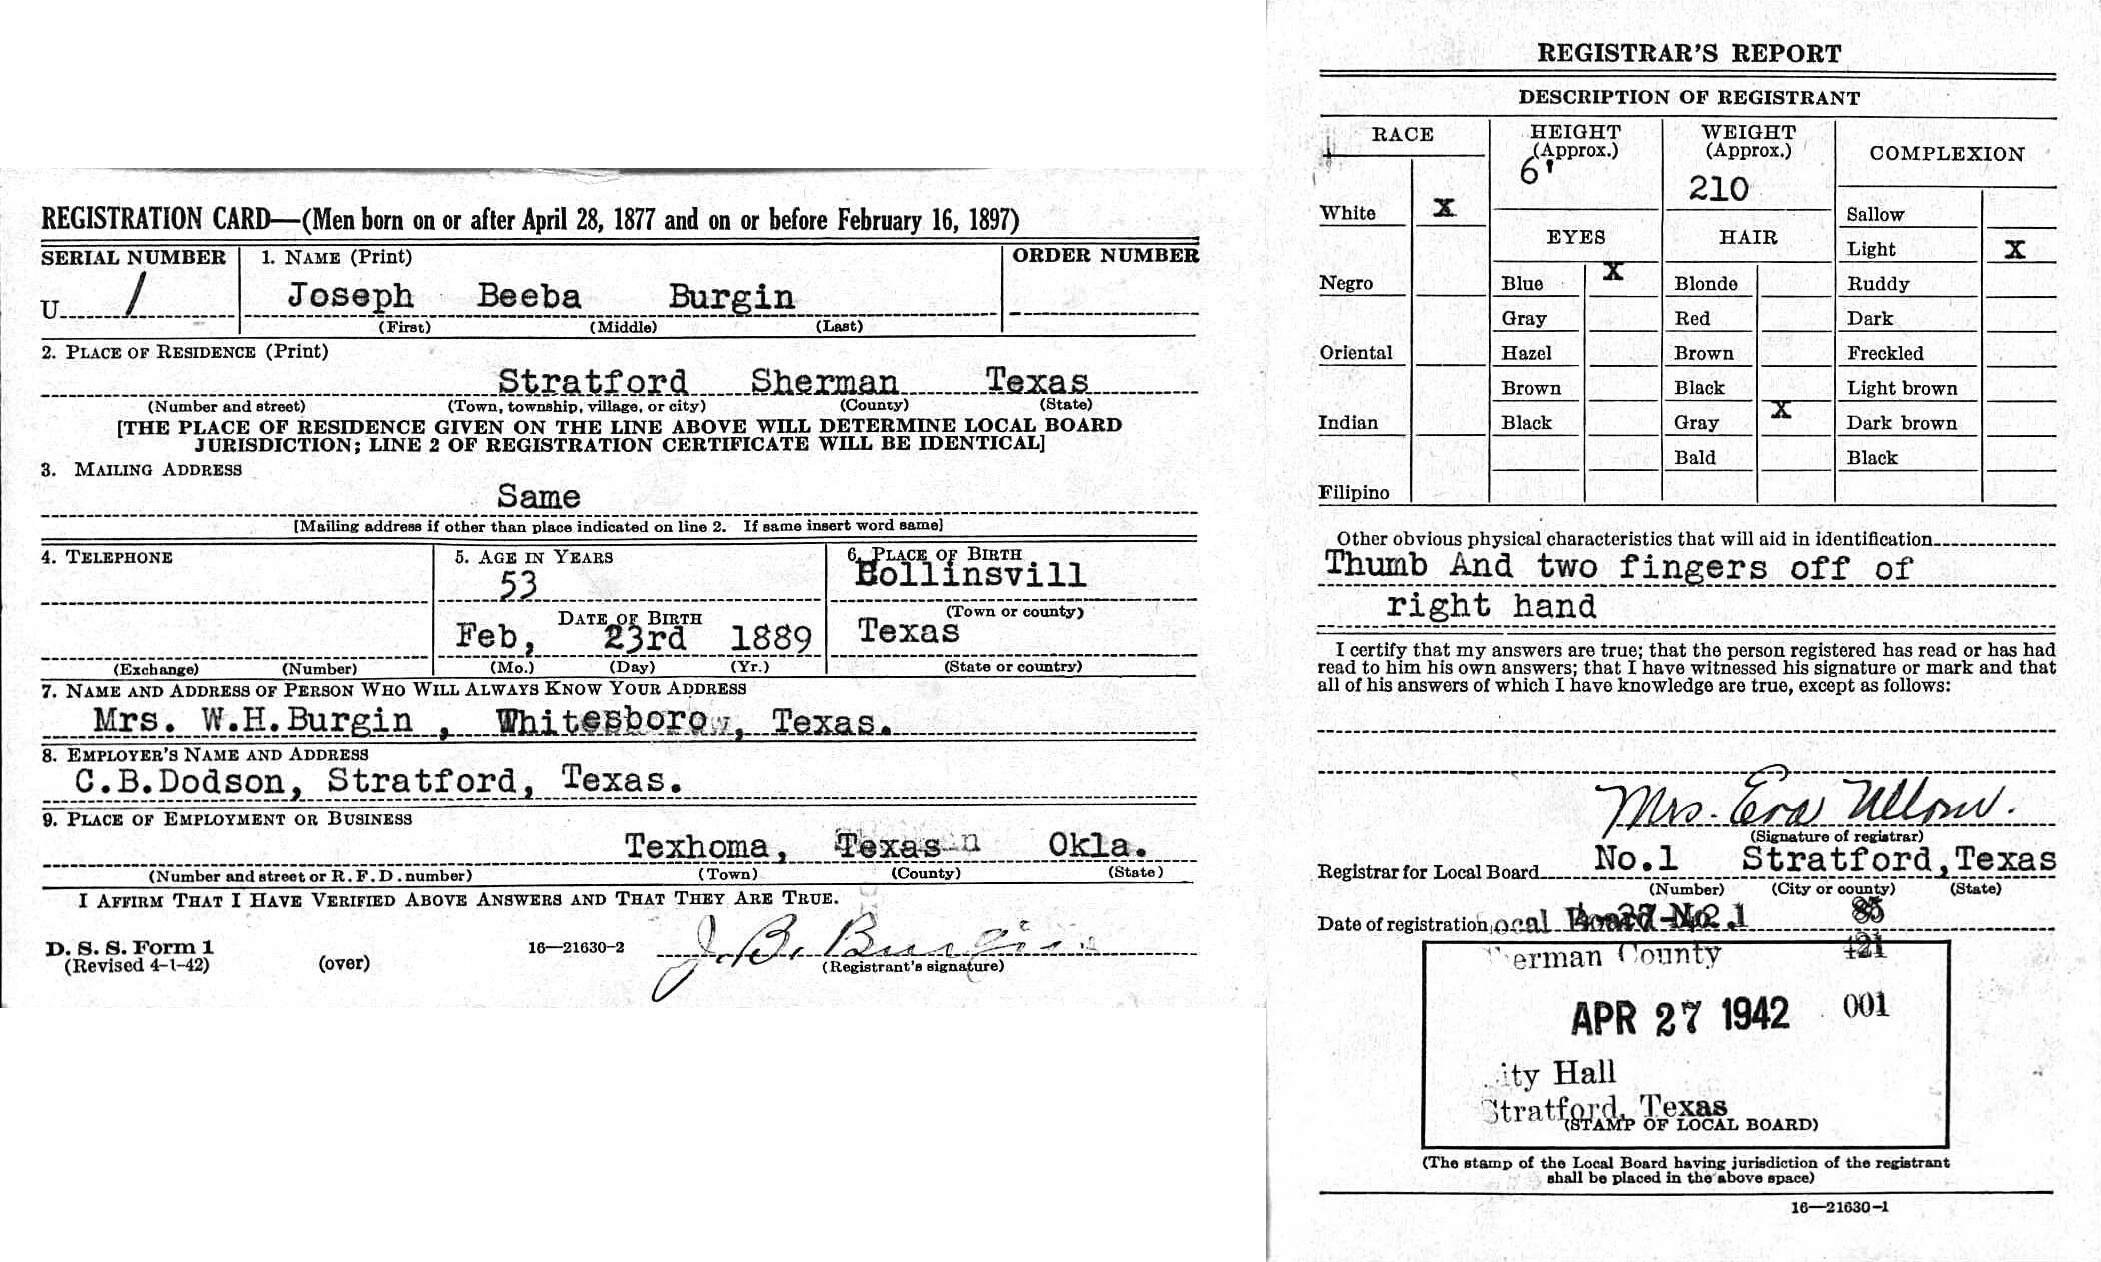 REGISTRATION CARD—(Men born on or after April 28, 1877 and on or before February 16, 1897)
SERIAL NUMBER
1. NAME (Print)
ORDER NUMBER
U
Joseph Beeba Burgin
(First) (Middle) (Last)
2. PLACE OF RESIDENCE (Print)
Stratford Sherman Texas
(Number and street) (Town, township, village, or city) (County) (State)
[THE PLACE OF RESIDENCE GIVEN ON THE LINE ABOVE WILL DETERMINE LOCAL BOARD
JURISDICTION; LINE 2 OF REGISTRATION CERTIFICATE WILL BE IDENTICAL]
3. MAILING ADDRESS
Same
[Mailing address if other than place indicated on line 2. If same insert word same]
4. TELEPHONE
(Exchange) (Number)
5. AGE IN YEARS
53
DATE OF BIRTH
Feb, 23rd 1889
(Mo.) (Day) (Yr.)
6. PLACE OF BIRTH
(Town or county)
Texas
(State or country)
7. NAME AND ADDRESS OF PERSON WHO WILL ALWAYS KNOW YOUR ADDRESS
Mrs. W.H.Burgin , Whitesboro, Texas.
8. EMPLOYER'S NAME AND ADDRESS
C.B.Dodson, Stratford, Texas.
9. PLACE OF EMPLOYMENT OR BUSINESS
Texhoma, Texas Okla.
(Number and street or R. F. D. number) (Town) (County) (State)
I AFFIRM THAT I HAVE VERIFIED ABOVE ANSWERS AND THAT THEY ARE TRUE.
D. S. S. Form 1
(Revised 4-1-42)
(over)
16—21630-2
J. B. Burgin
(Registrant's signature)
REGISTRAR'S REPORT
DESCRIPTION OF REGISTRANT
RACE
HEIGHT
(Approx.)
6'
WEIGHT
(Approx.)
210
COMPLEXION
White X
Negro
Oriental
Indian
Filipino
EYES
Blue X
Gray
Hazel
Brown
Black
HAIR
Blonde
Red
Brown
Black
Gray X
Bald
Sallow
Light X
Ruddy
Dark
Freckled
Light brown
Dark brown
Black
Other obvious physical characteristics that will aid in identification
Thumb And two fingers off of
right hand
I certify that my answers are true; that the person registered has read or has had
read to him his own answers; that I have witnessed his signature or mark and that
all of his answers of which I have knowledge are true, except as follows:
Mrs. Eva
(Signature of registrar)
Registrar for Local Board No.1 Stratford,Texas
(Number) (City or county) (State)
Date of registration
erman County
APR 27 1942 001
ity Hall
Stratford, Texas
(STAMP OF LOCAL BOARD)
(The stamp of the Local Board having jurisdiction of the registrant
shall be placed in the above space)
16—21630-1